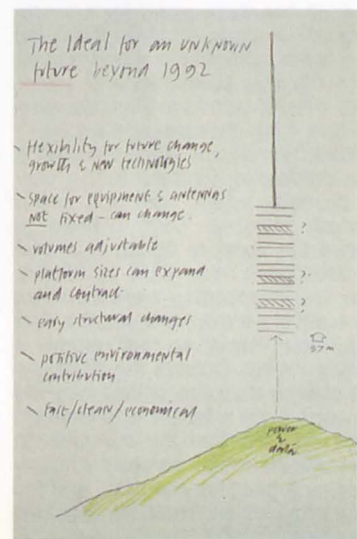 The Ideal for an UNKNOWN
future beyond 1992
flexibility for future change,
growth & new technologies
space for equipment & antennas
NOT fixed - can change.
volumes adjustable
platform sizes can expand
and contract.
easy structural changes
positive environmental
contribution
fast/clean/economical
?
?
?
?
57m
power
&
data